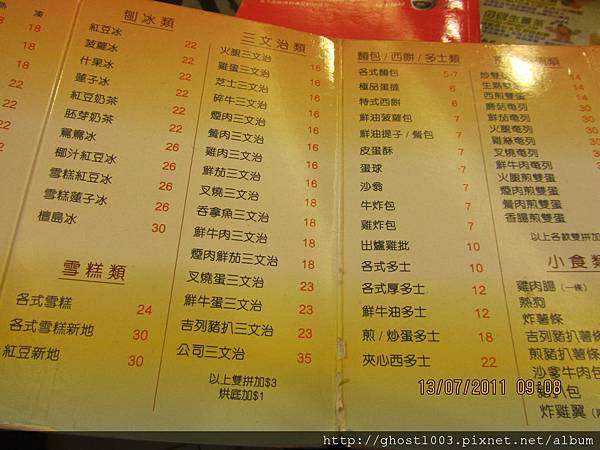 熱 凍
刨冰類
紅豆冰 22
菠蘿冰 22
什果冰 22
蓮子冰 22
紅豆奶茶 22
胚芽奶茶 22
鴛鴦冰 26
椰汁紅豆冰 26
雪糕紅豆冰 26
雪糕蓮子冰 26
檀島冰 30
雪糕類
各式雪糕 24
各式雪糕新地 30
紅豆新地 30
三文治類
火腿三文治 16
雞蛋三文治 16
芝士三文治 16
碎牛三文治 16
煙肉三文治 16
餐肉三文治 16
雞肉三文治 16
鮮茄三文治 16
叉燒三文治 18
吞拿魚三文治 18
鮮牛肉三文治 18
煙肉鮮茄三文治 18
叉燒蛋三文治 23
鮮牛蛋三文治 23
吉列豬扒三文治 23
公司三文治 35
以上雙拼加$3
烘底加$1
麵包/西餅/多士類
各式麵包 5-7
極品蛋撻 6
特式西餅 6
鮮油菠蘿包 7
鮮油提子/餐包 7
皮蛋酥 7
蛋球 7
沙翁 7
牛炸包 7
雞炸包 7
出爐雞批 10
各式多士 10
各式厚多士 12
鮮牛油多士 12
煎/炒蛋多士 18
夾心西多士 22
炒雙
生熟雙蛋 14
西煎雙蛋 14
蘑菇奄列 30
鮮茄奄列 30
火腿奄列 30
雞絲奄列 30
叉燒奄列 30
鮮牛肉奄列
火腿煎雙蛋
煙肉煎雙蛋
餐肉煎雙蛋
香腸煎雙蛋
以上各款雙拼加
小食類
雞肉腸(一條)
熱狗
炸薯條
吉列豬扒薯條
煎豬扒薯條
沙爹牛肉包
豬扒包
炸雞翼
13/07/2011 09:08
http://ghost1003.pixnet.net/album